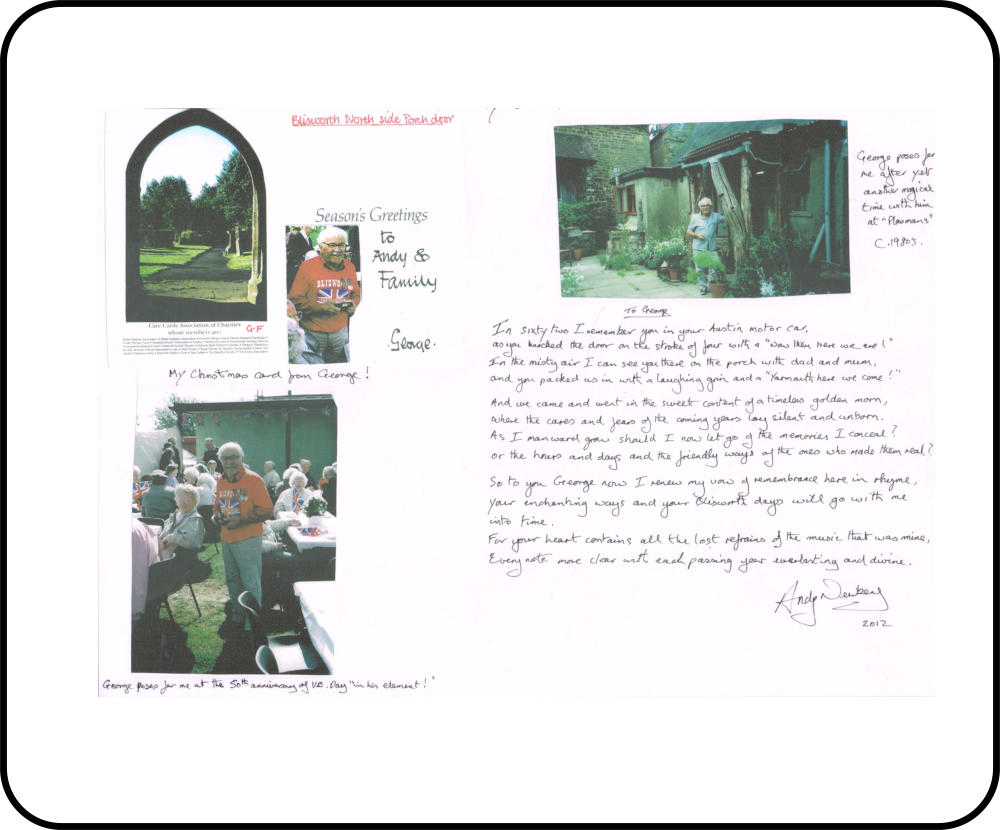 Blisworth North side Porch door
Season's Greetings
to
Andy &
Family
George.
BLISWORTH
Care Cards Association of Charities
whose members are:
G.F
My Christmas card from George!
George poses for me at the 50th anniversary of V.E. Day "in his element!"
George poses for
me after yet
another magical
time with him
at "Plowmans"
C. 1980s.
To George
In sixty two I remember you in your Austin motor car,
as you knocked the door on the stroke of four with a "Was then here we are!"
In the misty air I can see you there on the porch with dad and mum,
and you packed us in with a laughing grin and a "Yarmouth, here we come!"
And we came and went in the sweet content of a timeless golden morn,
where the cares and fears of the coming years lay silent and unborn.
As I manward grow should I now let go of the memories I conceal?
or the hours and days and the friendly ways of the ones who made them real?
So to you George now I renew my vow of remembrance here in rhyme,
Your enchanting ways and your Blisworth days will go with me
into time.
For your heart contains all the lost refrains of the music that was mine,
Every note more clear with each passing year everlasting and divine.
Andy Newbery
2012